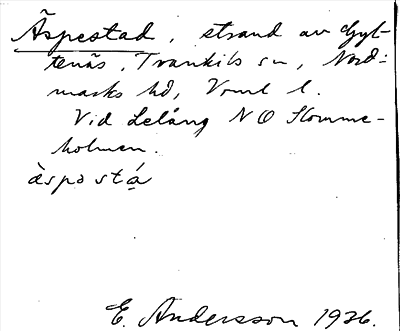 Äspestad, strand av Gyl-
tenäs, Trankils sn, Nord-
marks hd, Vrml l.
Vid Lelång NO Slomme-
holmen.
àspo stá
E. Andersson 1926.